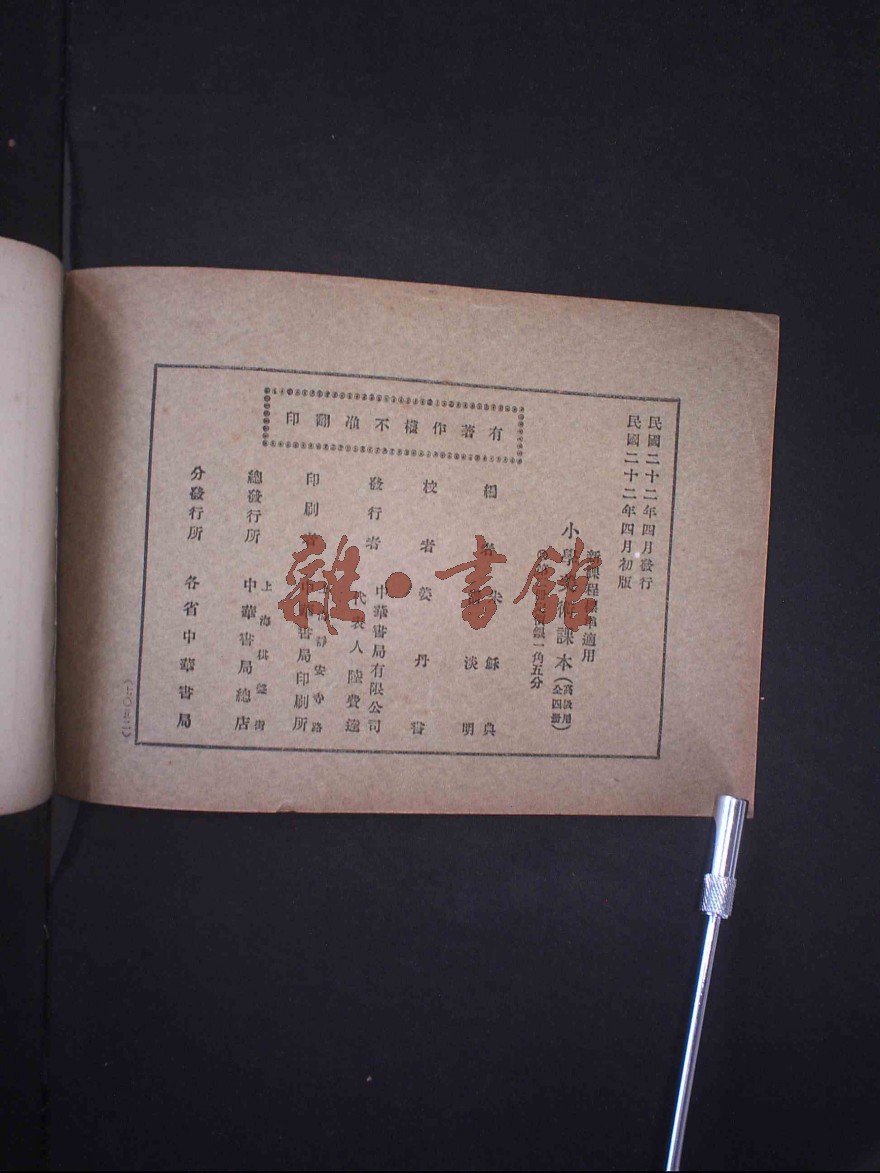 民國二十二年四月發行
民國二十二年四月初版
新課程標準適用
小學美術課本（高級用全四冊）
銀一角五分
有著作權不准翻印
編者
朱穌典
淡明
校者 姜丹書
發行者 中華書局有限公司
代表人陸費逵
靜安寺路
印刷者 中華書局印刷所
上海棋盤街
總發行所 中華書局總店
分發行所 各省中華書局
（七〇五二）
雜·書館